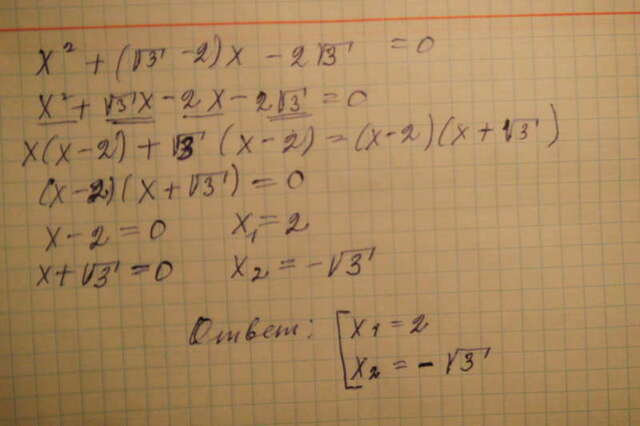 x² + (√3 - 2)x - 2√3 = 0
x² + √3x - 2x - 2√3 = 0
x(x - 2) + √3 (x - 2) = (x - 2)(x + √3)
(x - 2)(x + √3) = 0
x - 2 = 0 x₁ = 2
x + √3 = 0 x₂ = -√3
Ответ: [x₁ = 2
x₂ = -√3